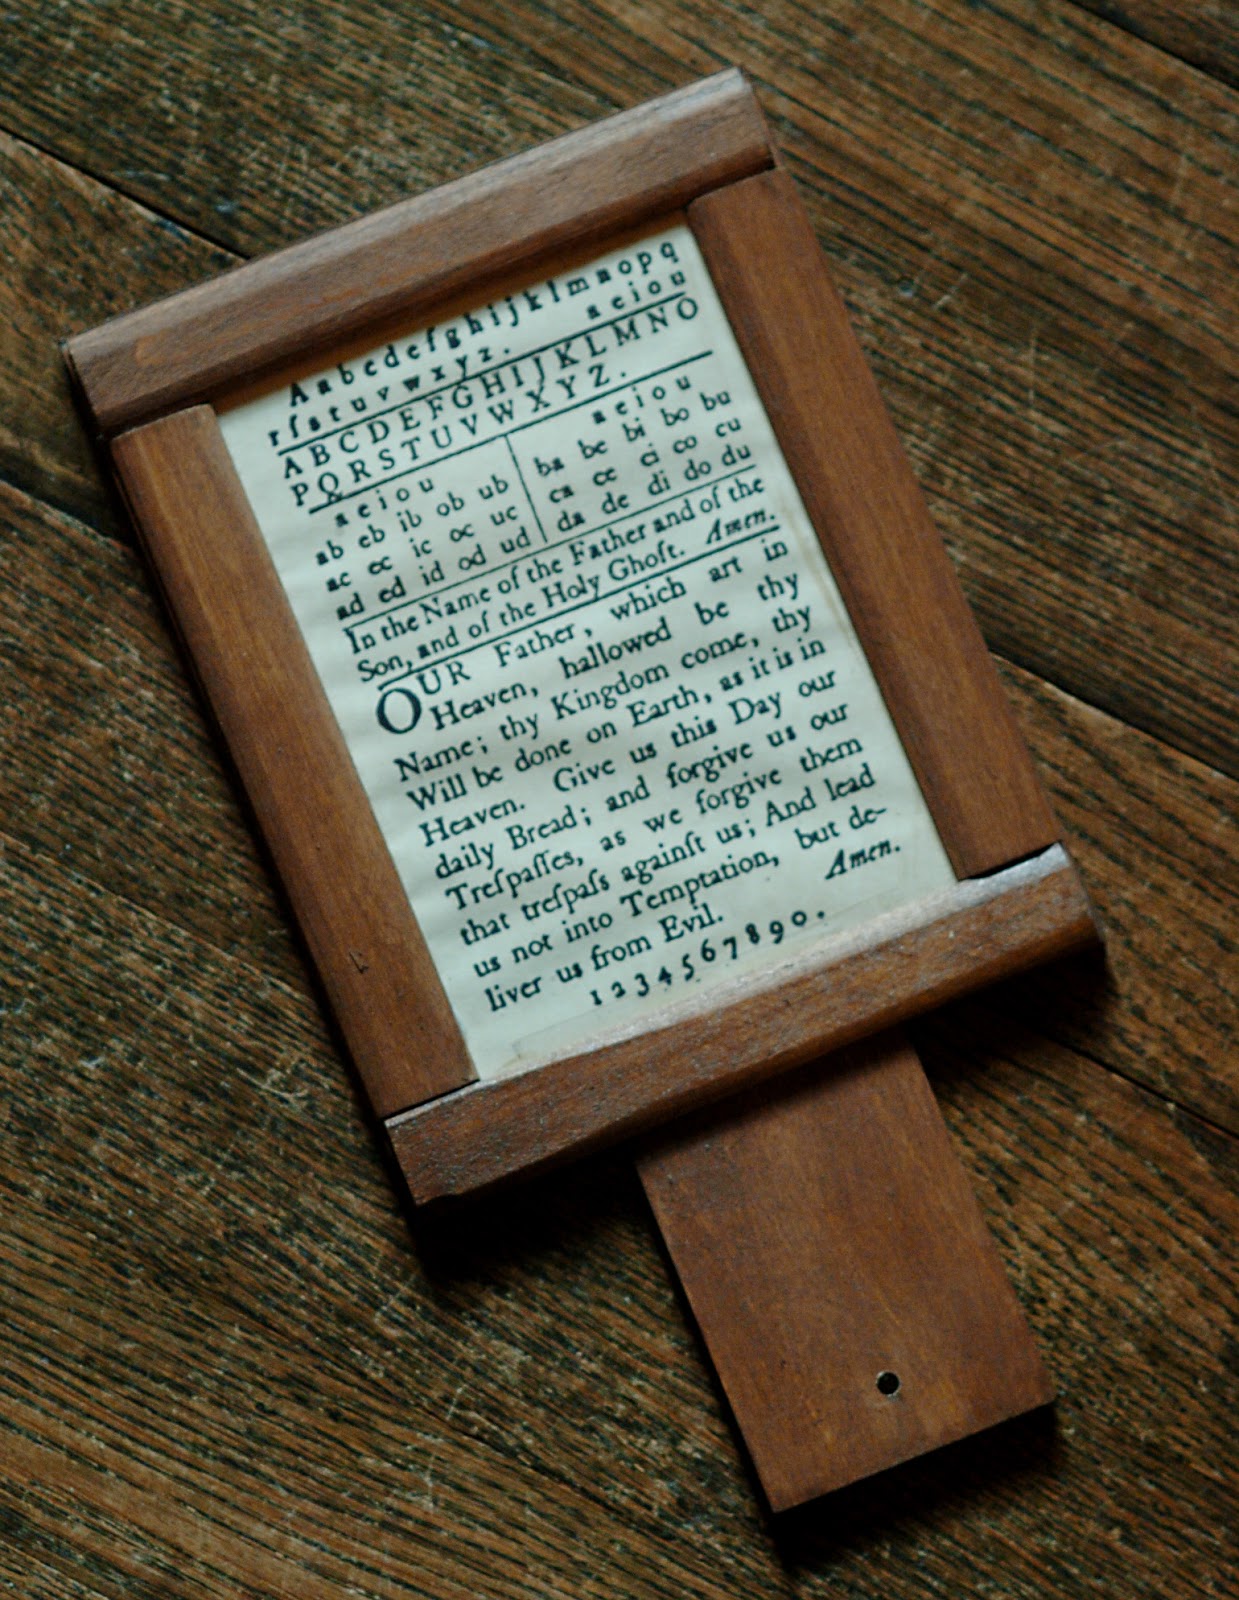 A a b c d e f g h i j k l m n o p q
r ſ s t u v w x y z . a e i o u
A B C D E F G H I J K L M N O
P Q R S T U V W X Y Z .
a e i o u
ab eb ib ob ub
ac ec ic oc uc
ad ed id od ud
a e i o u
ba be bi bo bu
ca ce ci co cu
da de di do du
In the Name of the Father and of the
Son, and of the Holy Ghoſt. Amen.
OUR Father, which art in
Heaven, hallowed be thy
Name; thy Kingdom come, thy
Will be done on Earth, as it is in
Heaven. Give us this Day our
daily Bread; and forgive us our
Treſpaſſes, as we forgive them
that treſpaſs againſt us; And lead
us not into Temptation, but de-
liver us from Evil. Amen.
1 2 3 4 5 6 7 8 9 0 .